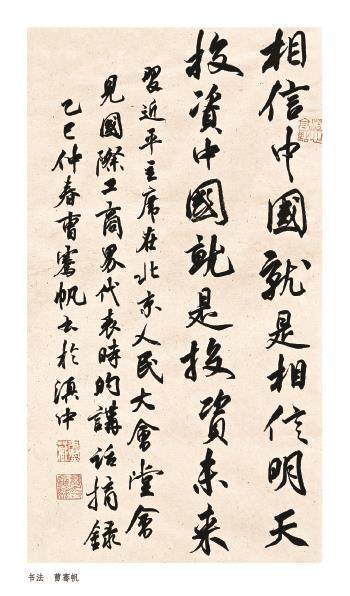 相信中國就是相信明天
投資中國就是投資未来
習近平主席在北京人民大會堂會
見國際工商界代表時的講话摘録
乙巳仲春曹骞帆书於滇中
书法 曹骞帆